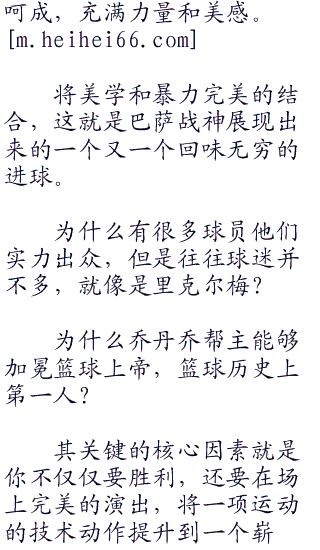 呵成，充满力量和美感。
[m.heihei66.com]
将美学和暴力完美的结
合，这就是巴萨战神展现出
来的一个又一个回味无穷的
进球。
为什么有很多球员他们
实力出众，但是往往球迷并
不多，就像是里克尔梅？
为什么乔丹乔帮主能够
加冕篮球上帝，篮球历史上
第一人？
其关键的核心因素就是
你不仅仅要胜利，还要在场
上完美的演出，将一项运动
的技术动作提升到一个崭